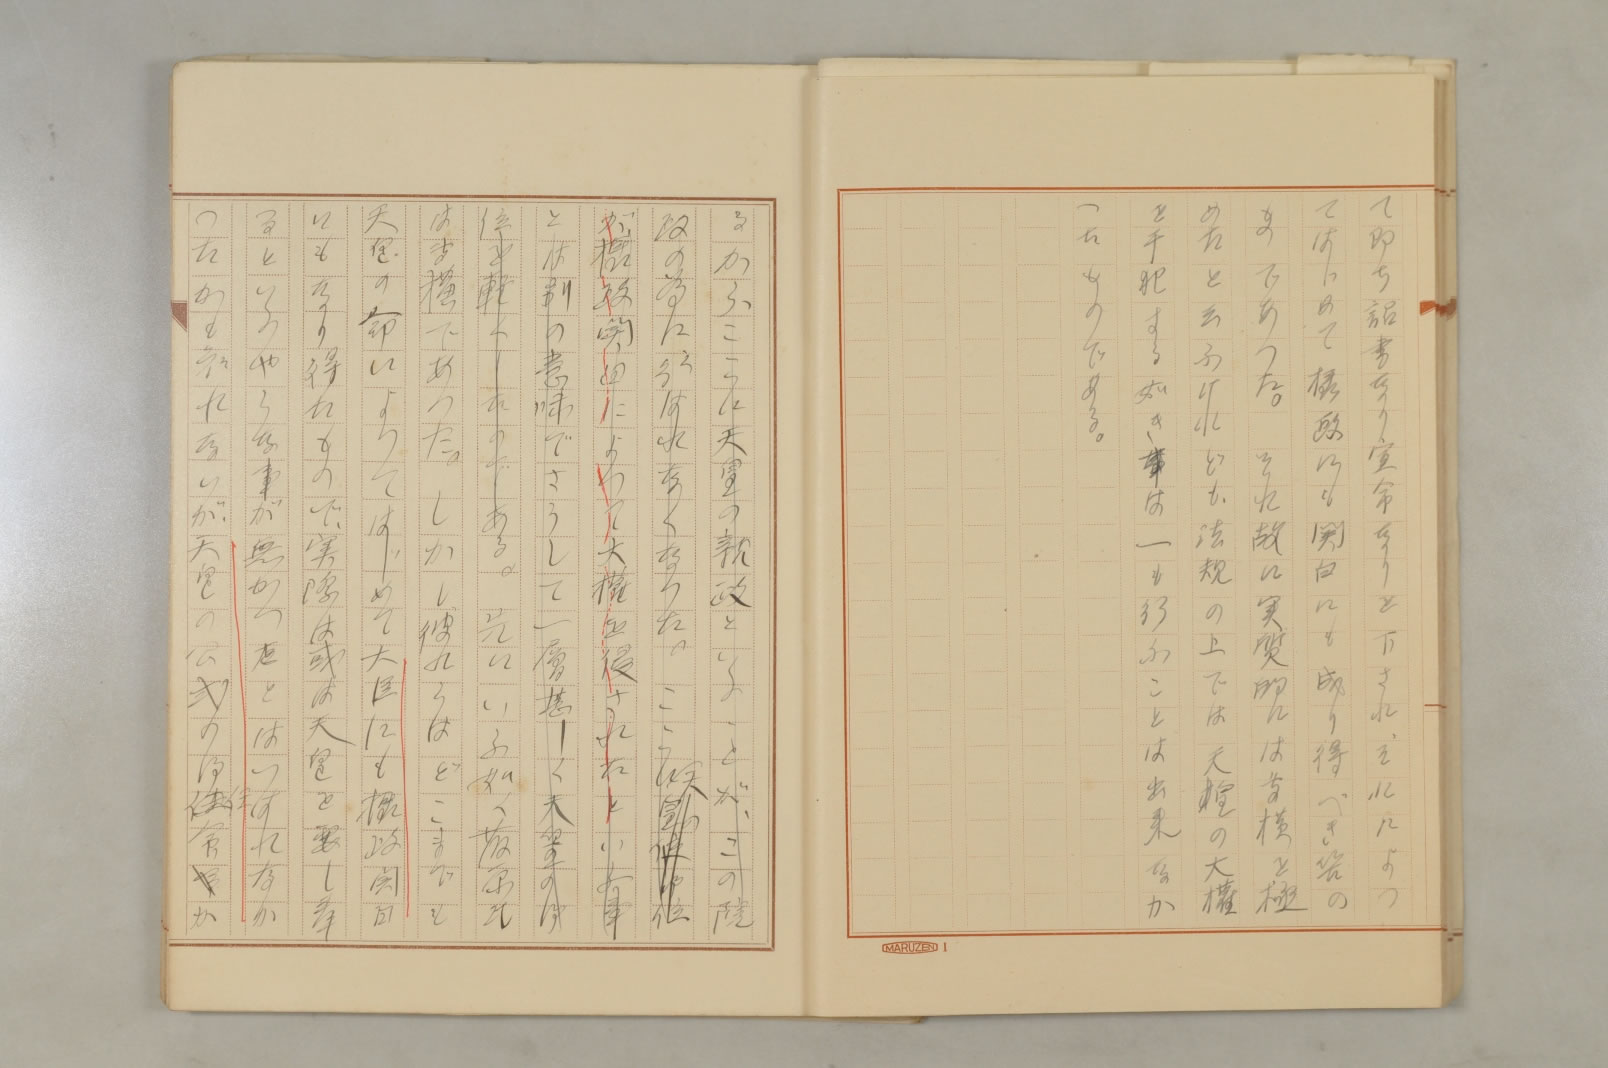 て即ち詔書なり宣命なりと下されそれによつ
てはじめて摂政にも関白にも成り得べき筈の
ものであつた。それ故に実質的には専横を極
めたと云ふけれども、法規の上では天皇の大権
を干犯する如き事は一も行ふことは出来なか
つたものである。
MARUZEN 1
るかふここに天皇の親政といふことが、この院
政の為に行はれなくなつた。ここに天皇の地位
が、摂政関白によつて大権を侵されたといふ事
とは別の意味でさうして一層甚しく天皇の地
位を軽くしたのである。先にいふ如く藤原氏
は専横であつた。しかし彼れらはどこまでも
天皇の命によつてはじめて大臣にも摂政関白
にもなり得たもので、実際は或は天皇を要し奉
るといふやうな事が無かつたとはいはれなか
つたかも知れないが、天皇の公式の任命なか